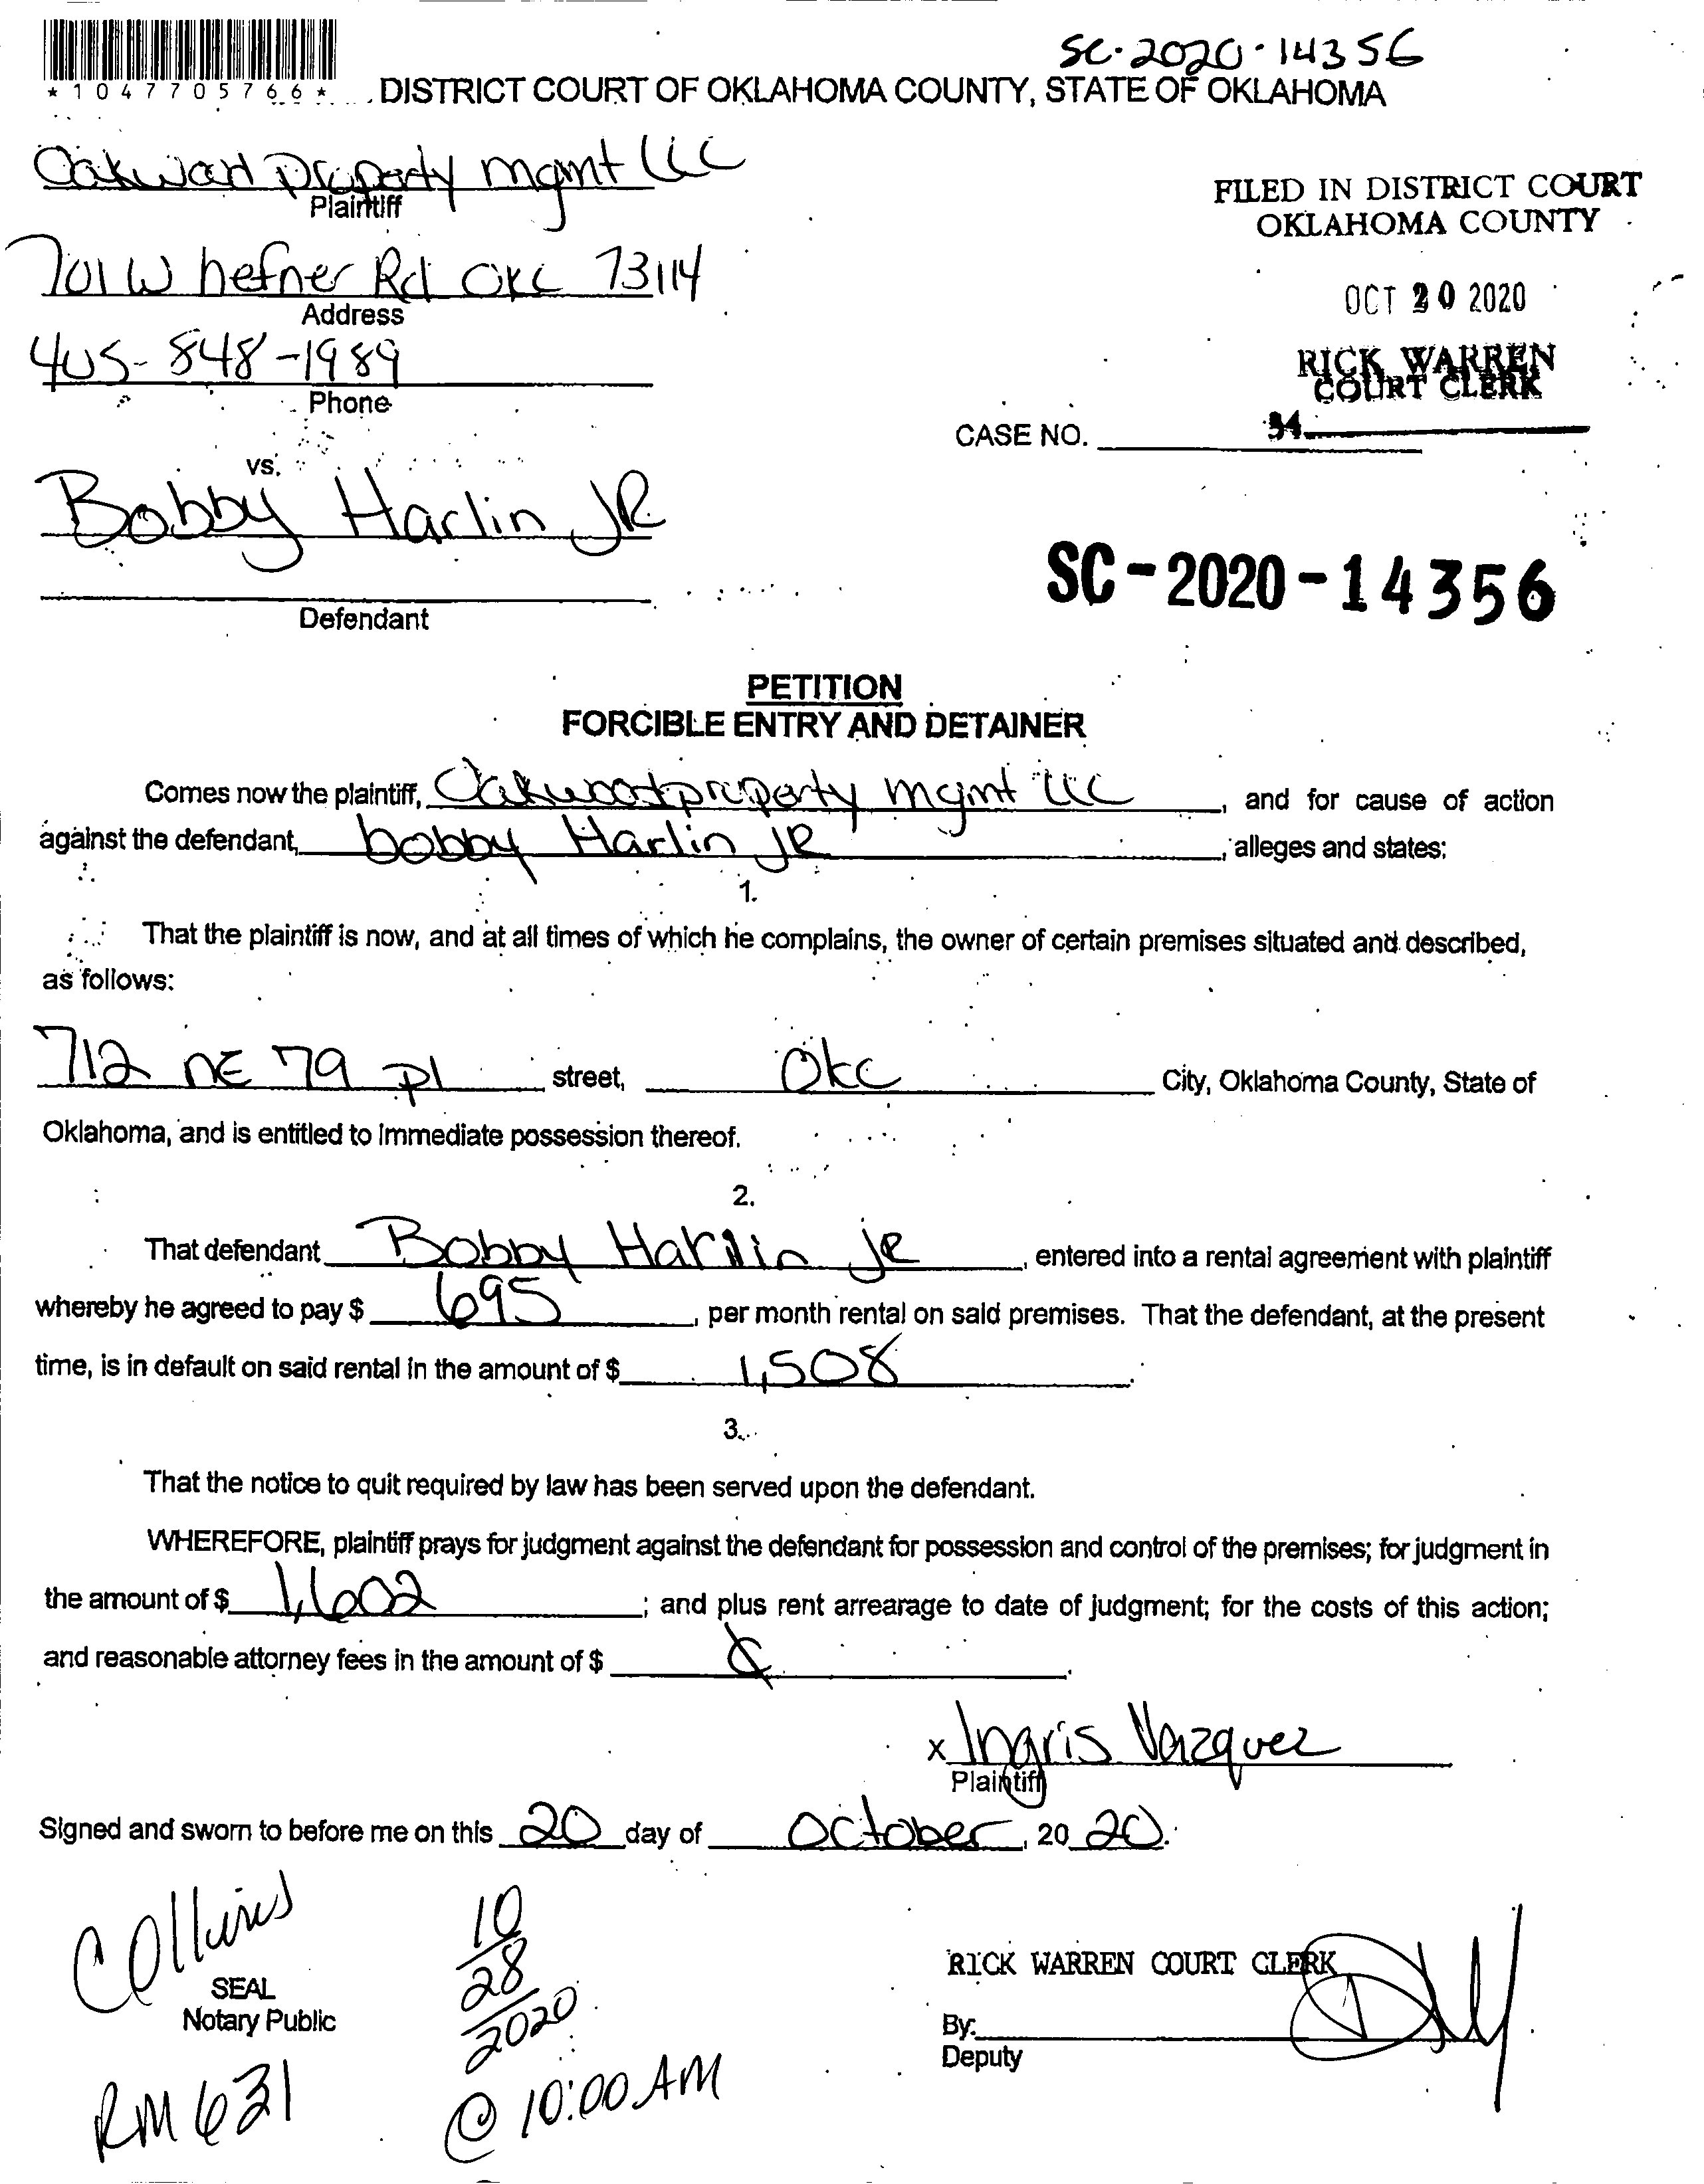 SC-2020-14356
*1047705766*
DISTRICT COURT OF OKLAHOMA COUNTY, STATE OF OKLAHOMA
Oakwood Property mgmt LLC
Plaintiff
FILED IN DISTRICT COURT
OKLAHOMA COUNTY
701 W hefner Rd OKC 73114
Address
OCT 20 2020
405-848-1989
Phone
RICK WARREN
COURT CLERK
CASE NO.
34
vs.
Bobby Harlin JR
Defendant
SC-2020-14356
PETITION
FORCIBLE ENTRY AND DETAINER
Comes now the plaintiff, Oakwood property mgmt LLC, and for cause of action
against the defendant, bobby Harlin JR, alleges and states:
1.
That the plaintiff is now, and at all times of which he complains, the owner of certain premises situated and described,
as follows:
712 NE 79 pl street, OKC City, Oklahoma County, State of
Oklahoma, and is entitled to immediate possession thereof.
2.
That defendant Bobby Harlin JR, entered into a rental agreement with plaintiff
whereby he agreed to pay $ 695, per month rental on said premises. That the defendant, at the present
time, is in default on said rental in the amount of $ 1,508.
3.
That the notice to quit required by law has been served upon the defendant.
WHEREFORE, plaintiff prays for judgment against the defendant for possession and control of the premises; for judgment in
the amount of $ 1,602; and plus rent arrearage to date of judgment; for the costs of this action;
and reasonable attorney fees in the amount of $
x Ingris Vazquez
Plaintiff
Signed and sworn to before me on this 20 day of October, 20 20.
Collins
10/28/2020
SEAL
Notary Public
RICK WARREN COURT CLERK
By:
Deputy
RM 631
@ 10:00 AM